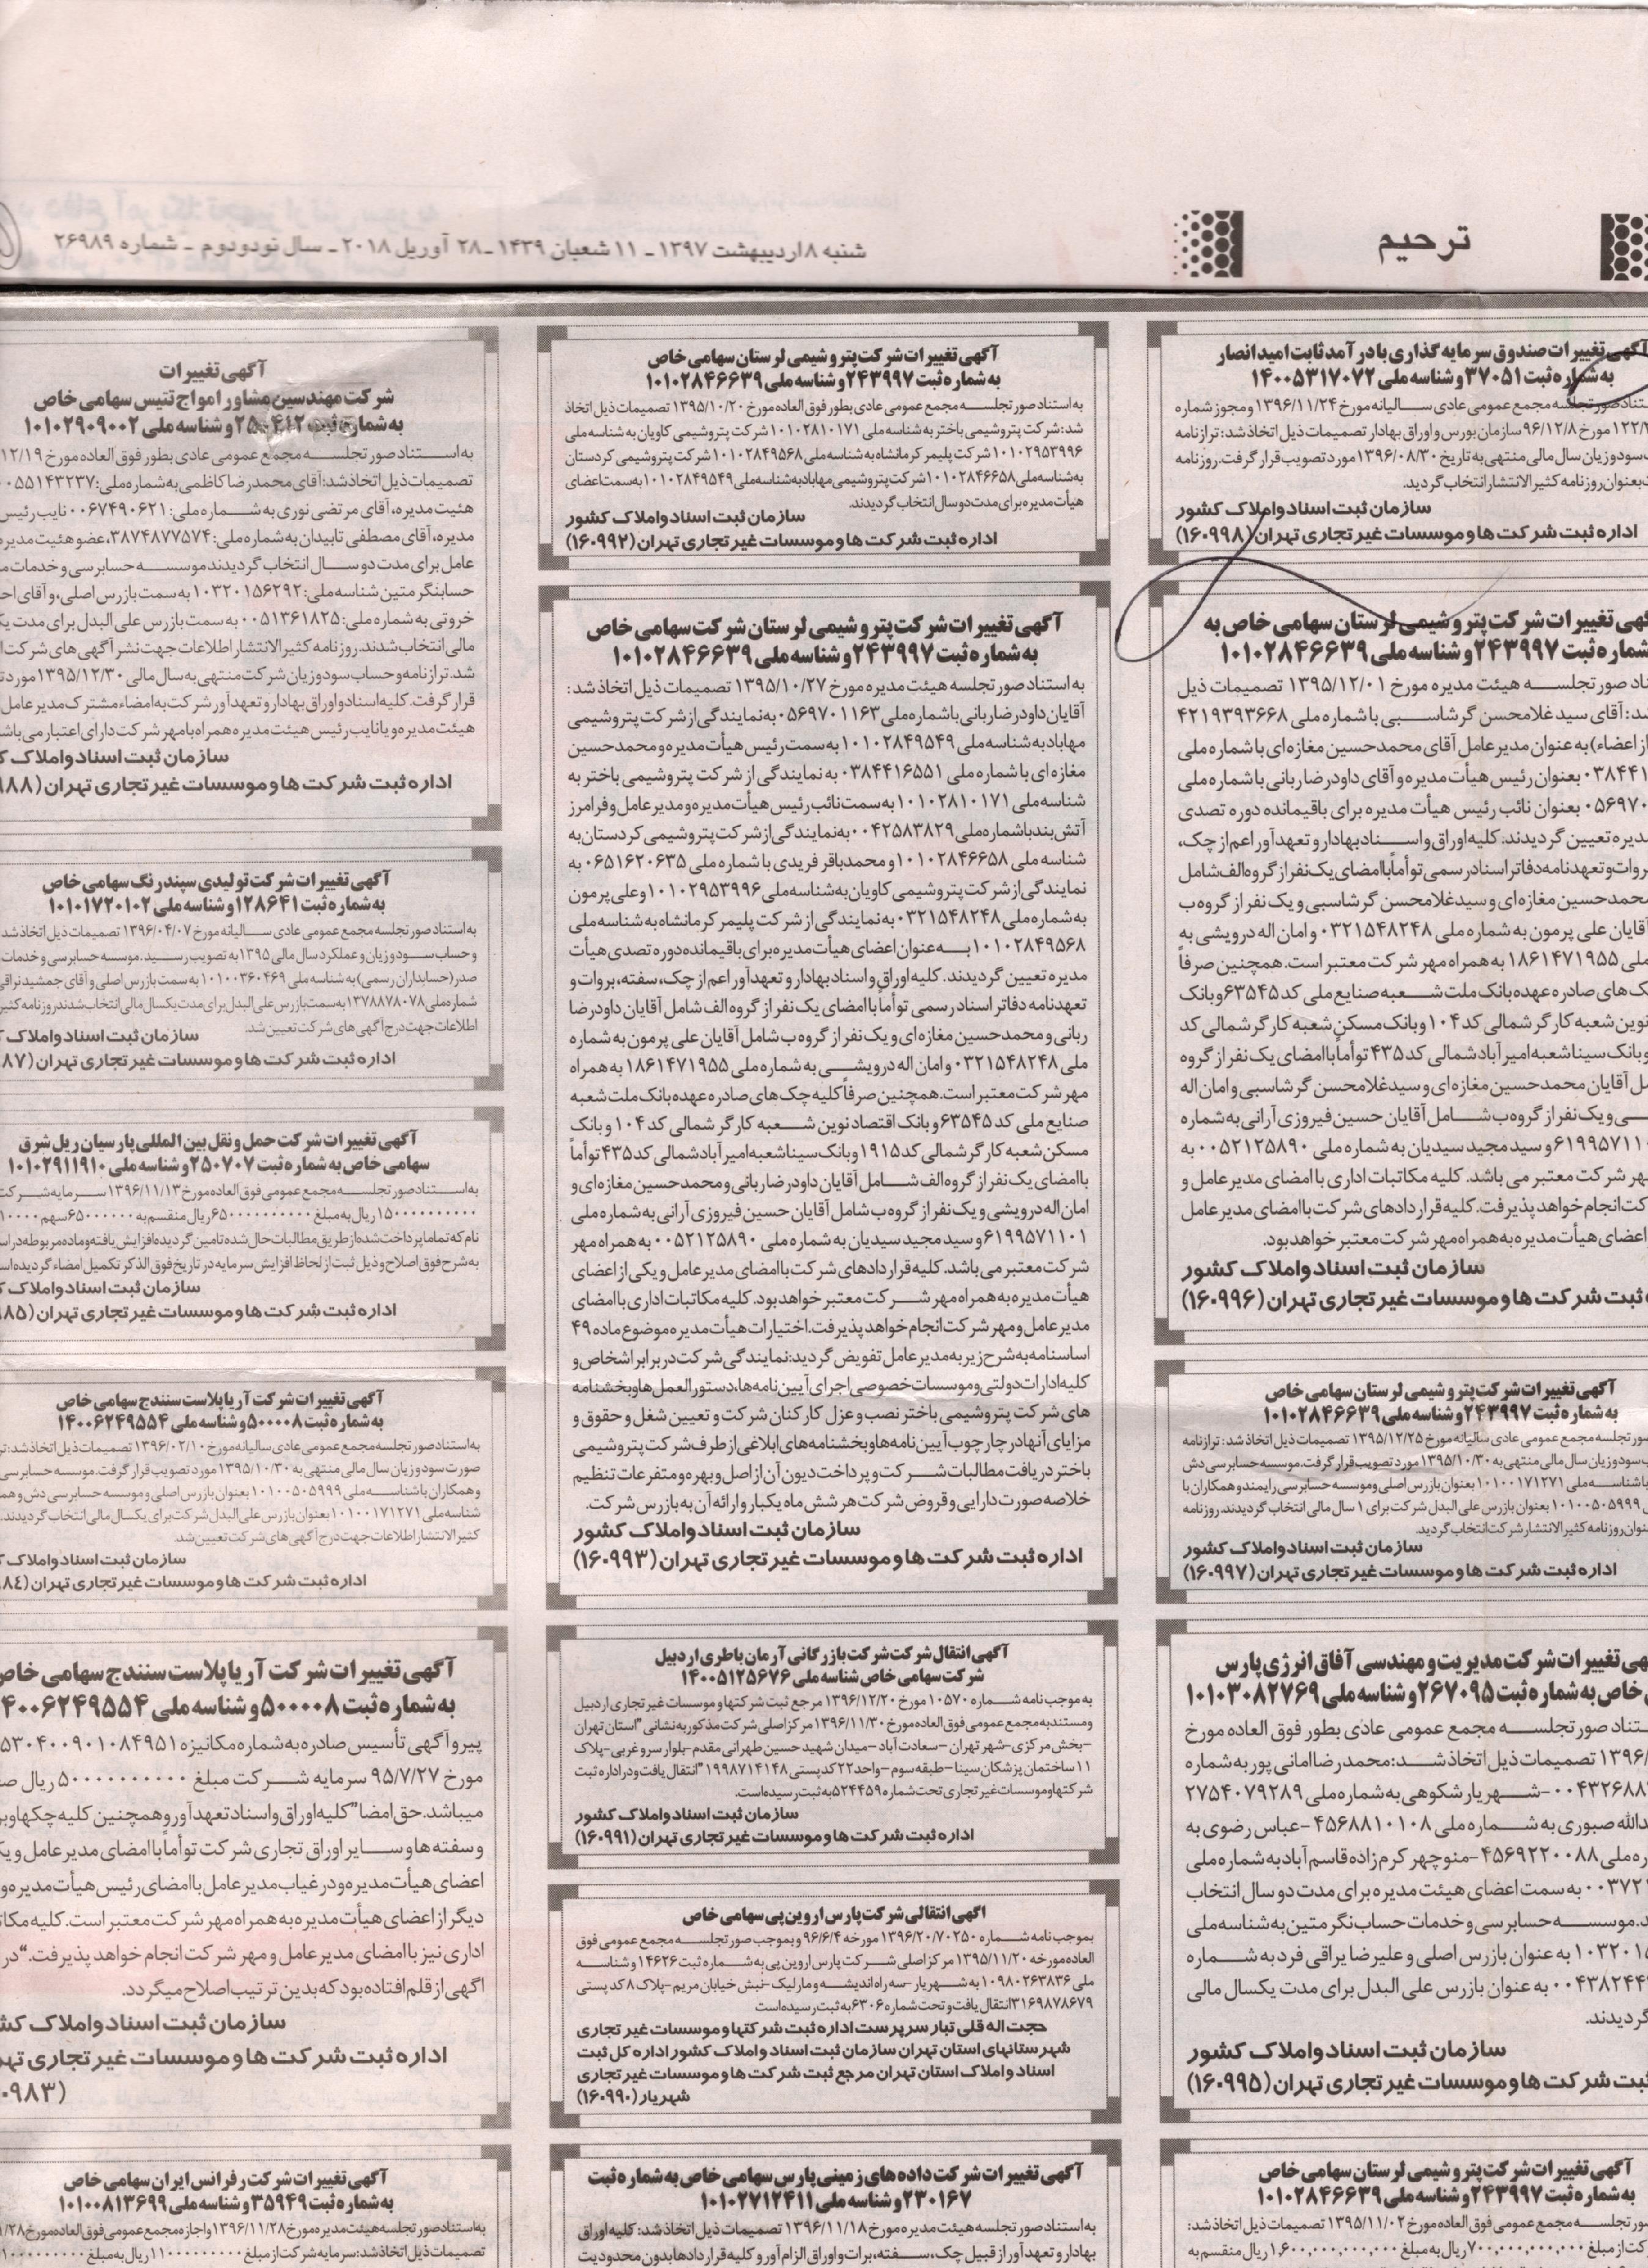 ترحیم
شنبه ۸ اردیبهشت ۱۳۹۷ ـ ۱۱ شعبان ۱۴۳۹ ـ ۲۸ آوریل ۲۰۱۸ ـ سال نود و دوم ـ شماره ۲۶۹۸۹
آگهی تغییرات صندوق سرمایه گذاری با درآمد ثابت امید انصار
به شماره ثبت ۳۷۰۵۱ و شناسه ملی ۱۴۰۰۵۳۱۷۰۷۲
صورتجلسه مجمع عمومی عادی سالیانه مورخ ۱۳۹۶/۱۱/۲۴ و مجوز شماره
مورخ ۹۶/۱۲/۸ سازمان بورس و اوراق بهادار تصمیمات ذیل اتخاذ شد: ترازنامه
سود و زیان سال مالی منتهی به تاریخ ۱۳۹۶/۰۸/۳۰ مورد تصویب قرار گرفت. روزنامه
بعنوان روزنامه کثیرالانتشار انتخاب گردید.
سازمان ثبت اسناد و املاک کشور
اداره ثبت شرکت ها و موسسات غیر تجاری تهران (۱۶۰۹۹۸)
تغییرات شرکت پتروشیمی لرستان سهامی خاص به
شماره ثبت ۲۴۳۹۹۷ و شناسه ملی ۱۰۱۰۲۸۴۶۶۳۹
صورتجلسه هیئت مدیره مورخ ۱۳۹۵/۱۲/۰۱ تصمیمات ذیل
شد: آقای سید غلامحسن گرشاسبی با شماره ملی ۴۲۱۹۳۹۳۶۶۸
از اعضاء) به عنوان مدیرعامل آقای محمدحسین مغازه ای با شماره ملی
بعنوان رئیس هیأت مدیره و آقای داود رضا ربانی با شماره ملی
بعنوان نائب رئیس هیأت مدیره برای باقیمانده دوره تصدی
مدیره تعیین گردیدند. کلیه اوراق و اسناد بهادار و تعهدآور اعم از چک،
بروات و تعهدنامه دفاتر اسناد رسمی توأماً با امضای یک نفر از گروه الف شامل
محمدحسین مغازه ای و سید غلامحسن گرشاسبی و یک نفر از گروه ب
آقایان علی پرمون به شماره ملی ۰۳۲۱۵۴۸۲۴۸ و امان اله درویشی به
ملی ۱۸۶۱۴۷۱۹۵۵ به همراه مهر شرکت معتبر است. همچنین صرفاً
چک های صادره عهده بانک ملت شعبه صنایع ملی کد ۶۳۵۴۵ و بانک
نوین شعبه کارگر شمالی کد ۱۰۴ و بانک مسکن شعبه کارگر شمالی کد
و بانک سینا شعبه امیرآباد شمالی کد ۴۳۵ توأماً با امضای یک نفر از گروه
آقایان محمدحسین مغازه ای و سید غلامحسن گرشاسبی و امان اله
و یک نفر از گروه ب شامل آقایان حسین فیروزی آرانی به شماره
و سید مجید سیدیان به شماره ملی ۰۰۵۲۱۲۵۸۹۰ به
مهر شرکت معتبر می باشد. کلیه مکاتبات اداری با امضای مدیرعامل و
انجام خواهد پذیرفت. کلیه قراردادهای شرکت با امضای مدیرعامل
اعضای هیأت مدیره به همراه مهر شرکت معتبر خواهد بود.
سازمان ثبت اسناد و املاک کشور
ثبت شرکت ها و موسسات غیر تجاری تهران (۱۶۰۹۹۶)
آگهی تغییرات شرکت پتروشیمی لرستان سهامی خاص
به شماره ثبت ۲۴۳۹۹۷ و شناسه ملی ۱۰۱۰۲۸۴۶۶۳۹
صورتجلسه مجمع عمومی عادی سالیانه مورخ ۱۳۹۵/۱۲/۲۵ تصمیمات ذیل اتخاذ شد: ترازنامه
سود و زیان سال مالی منتهی به ۱۳۹۵/۱۰/۳۰ مورد تصویب قرار گرفت. موسسه حسابرسی دش
با شناسه ملی ۱۰۱۰۰۱۷۱۲۷۱ بعنوان بازرس اصلی و موسسه حسابرسی رایمند و همکاران با
۱۰۱۰۰۵۰۵۹۹۹ بعنوان بازرس علی البدل شرکت برای ۱ سال مالی انتخاب گردیدند. روزنامه
روزنامه کثیرالانتشار شرکت انتخاب گردید.
سازمان ثبت اسناد و املاک کشور
اداره ثبت شرکت ها و موسسات غیر تجاری تهران (۱۶۰۹۹۷)
تغییرات شرکت مدیریت و مهندسی آفاق انرژی پارس
خاص به شماره ثبت ۲۶۷۰۹۵ و شناسه ملی ۱۰۱۰۳۰۸۲۷۶۹
صورتجلسه مجمع عمومی عادی بطور فوق العاده مورخ
تصمیمات ذیل اتخاذ شد: محمدرضا امانی پور به شماره
شهریار شکوهی به شماره ملی ۲۷۵۴۰۷۹۲۸۹
صبوری به شماره ملی ۴۵۶۸۸۱۰۱۰۸ -عباس رضوی به
ملی ۴۵۶۹۲۲۰۰۸۸ -منوچهر کرم زاده قاسم آباد به شماره ملی
به سمت اعضای هیئت مدیره برای مدت دو سال انتخاب
موسسه حسابرسی و خدمات حساب نگر متین به شناسه ملی
به عنوان بازرس اصلی و علیرضا یراقی فرد به شماره
به عنوان بازرس علی البدل برای مدت یکسال مالی
گردیدند.
سازمان ثبت اسناد و املاک کشور
ثبت شرکت ها و موسسات غیر تجاری تهران (۱۶۰۹۹۵)
آگهی تغییرات شرکت پتروشیمی لرستان سهامی خاص
به شماره ثبت ۲۴۳۹۹۷ و شناسه ملی ۱۰۱۰۲۸۴۶۶۳۹
صورتجلسه مجمع عمومی فوق العاده مورخ ۱۳۹۵/۱۱/۰۲ تصمیمات ذیل اتخاذ شد:
از مبلغ ۷۰۰,۰۰۰,۰۰۰,۰۰۰ ریال به مبلغ ۱,۶۰۰,۰۰۰,۰۰۰,۰۰۰ ریال منقسم به
آگهی تغییرات شرکت پتروشیمی لرستان سهامی خاص
به شماره ثبت ۲۴۳۹۹۷ و شناسه ملی ۱۰۱۰۲۸۴۶۶۳۹
به استناد صورتجلسه مجمع عمومی عادی بطور فوق العاده مورخ ۱۳۹۵/۱۰/۲۰ تصمیمات ذیل اتخاذ
شد: شرکت پتروشیمی باختر به شناسه ملی ۱۰۱۰۲۸۱۰۱۷۱ شرکت پتروشیمی کاویان به شناسه ملی
۱۰۱۰۲۹۵۳۹۹۶ شرکت پلیمر کرمانشاه به شناسه ملی ۱۰۱۰۲۸۴۹۵۶۸ شرکت پتروشیمی کردستان
به شناسه ملی ۱۰۱۰۲۸۴۶۶۵۸ شرکت پتروشیمی مهاباد به شناسه ملی ۱۰۱۰۲۸۴۹۵۴۹ به سمت اعضای
هیأت مدیره برای مدت دو سال انتخاب گردیدند.
سازمان ثبت اسناد و املاک کشور
اداره ثبت شرکت ها و موسسات غیر تجاری تهران (۱۶۰۹۹۲)
آگهی تغییرات شرکت پتروشیمی لرستان شرکت سهامی خاص
به شماره ثبت ۲۴۳۹۹۷ و شناسه ملی ۱۰۱۰۲۸۴۶۶۳۹
به استناد صورتجلسه هیئت مدیره مورخ ۱۳۹۵/۱۰/۲۷ تصمیمات ذیل اتخاذ شد:
آقایان داود رضا ربانی با شماره ملی ۰۵۶۹۷۰۱۱۶۳ به نمایندگی از شرکت پتروشیمی
مهاباد به شناسه ملی ۱۰۱۰۲۸۴۹۵۴۹ به سمت رئیس هیأت مدیره و محمدحسین
مغازه ای با شماره ملی ۰۳۸۴۴۱۶۵۵۱ به نمایندگی از شرکت پتروشیمی باختر به
شناسه ملی ۱۰۱۰۲۸۱۰۱۷۱ به سمت نائب رئیس هیأت مدیره و مدیرعامل و فرامرز
آتش بند با شماره ملی ۰۰۴۲۵۸۳۸۲۹ به نمایندگی از شرکت پتروشیمی کردستان به
شناسه ملی ۱۰۱۰۲۸۴۶۶۵۸ و محمدباقر فریدی با شماره ملی ۰۶۵۱۶۲۰۶۳۵ به
نمایندگی از شرکت پتروشیمی کاویان به شناسه ملی ۱۰۱۰۲۹۵۳۹۹۶ و علی پرمون
به شماره ملی ۰۳۲۱۵۴۸۲۴۸ به نمایندگی از شرکت پلیمر کرمانشاه به شناسه ملی
۱۰۱۰۲۸۴۹۵۶۸ به عنوان اعضای هیأت مدیره برای باقیمانده دوره تصدی هیأت
مدیره تعیین گردیدند. کلیه اوراق و اسناد بهادار و تعهدآور اعم از چک، سفته، بروات و
تعهدنامه دفاتر اسناد رسمی توأماً با امضای یک نفر از گروه الف شامل آقایان داود رضا
ربانی و محمدحسین مغازه ای و یک نفر از گروه ب شامل آقایان علی پرمون به شماره
ملی ۰۳۲۱۵۴۸۲۴۸ و امان اله درویشی به شماره ملی ۱۸۶۱۴۷۱۹۵۵ به همراه
مهر شرکت معتبر است. همچنین صرفاً کلیه چک های صادره عهده بانک ملت شعبه
صنایع ملی کد ۶۳۵۴۵ و بانک اقتصاد نوین شعبه کارگر شمالی کد ۱۰۴ و بانک
مسکن شعبه کارگر شمالی کد ۱۹۱۵ و بانک سینا شعبه امیرآباد شمالی کد ۴۳۵ توأماً
با امضای یک نفر از گروه الف شامل آقایان داود رضا ربانی و محمدحسین مغازه ای و
امان اله درویشی و یک نفر از گروه ب شامل آقایان حسین فیروزی آرانی به شماره ملی
۶۱۹۹۵۷۱۱۰۱ و سید مجید سیدیان به شماره ملی ۰۰۵۲۱۲۵۸۹۰ به همراه مهر
شرکت معتبر می باشد. کلیه قراردادهای شرکت با امضای مدیرعامل و یکی از اعضای
هیأت مدیره به همراه مهر شرکت معتبر خواهد بود. کلیه مکاتبات اداری با امضای
مدیرعامل و مهر شرکت انجام خواهد پذیرفت. اختیارات هیأت مدیره موضوع ماده ۴۹
اساسنامه به شرح زیر به مدیرعامل تفویض گردید: نمایندگی شرکت در برابر اشخاص و
کلیه ادارات دولتی و موسسات خصوصی اجرای آیین نامه ها، دستورالعمل ها و بخشنامه
های شرکت پتروشیمی باختر نصب و عزل کارکنان شرکت و تعیین شغل و حقوق و
مزایای آنها در چارچوب آیین نامه ها و بخشنامه های ابلاغی از طرف شرکت پتروشیمی
باختر دریافت مطالبات شرکت و پرداخت دیون آن از اصل و بهره و متفرعات تنظیم
خلاصه صورت دارایی و قروض شرکت هر شش ماه یکبار و ارائه آن به بازرس شرکت.
سازمان ثبت اسناد و املاک کشور
اداره ثبت شرکت ها و موسسات غیر تجاری تهران (۱۶۰۹۹۳)
آگهی انتقال شرکت شرکت بازرگانی آرمان باطری اردبیل
شرکت سهامی خاص شناسه ملی ۱۴۰۰۵۱۲۵۶۷۶
به موجب نامه شماره ۱۰۵۷۰ مورخ ۱۳۹۶/۱۲/۲۰ مرجع ثبت شرکتها و موسسات غیر تجاری اردبیل
و مستند به مجمع عمومی فوق العاده مورخ ۱۳۹۶/۱۱/۳۰ مرکز اصلی شرکت مذکور به نشانی "استان تهران
-بخش مرکزی-شهر تهران -سعادت آباد -میدان شهید حسین طهرانی مقدم-بلوار سرو غربی-پلاک
۱۱ ساختمان پزشکان سینا -طبقه سوم -واحد ۲۲ کدپستی ۱۹۹۸۷۱۴۱۴۸" انتقال یافت و در اداره ثبت
شرکتها و موسسات غیر تجاری تحت شماره ۵۲۴۴۵۹ به ثبت رسیده است.
سازمان ثبت اسناد و املاک کشور
اداره ثبت شرکت ها و موسسات غیر تجاری تهران (۱۶۰۹۹۱)
اگهی انتقالی شرکت پارس اروین پی سهامی خاص
بموجب نامه شماره ۱۳۹۶/۲۰/۷۰۲۵۰ مورخه ۹۶/۶/۴ و بموجب صورتجلسه مجمع عمومی فوق
العاده مورخه ۱۳۹۵/۱۱/۲۰ مرکز اصلی شرکت پارس اروین پی به شماره ثبت ۱۴۶۲۶ و شناسه
ملی ۱۰۹۸۰۲۶۳۸۳۶ به شهریار -سه راه اندیشه و مارلیک -نبش خیابان مریم -پلاک ۸ کد پستی
۳۱۶۹۸۷۸۶۷۹ انتقال یافت و تحت شماره ۶۳۰۶ به ثبت رسیده است
حجت اله قلی تبار سرپرست اداره ثبت شرکتها و موسسات غیر تجاری
شهرستانهای استان تهران سازمان ثبت اسناد و املاک کشور اداره کل ثبت
اسناد و املاک استان تهران مرجع ثبت شرکت ها و موسسات غیر تجاری
شهریار (۱۶۰۹۹۰)
آگهی تغییرات شرکت داده های زمینی پارس سهامی خاص به شماره ثبت
۲۳۰۱۶۷ و شناسه ملی ۱۰۱۰۲۷۱۲۴۱۱
به استناد صورتجلسه هیئت مدیره مورخ ۱۳۹۶/۱۱/۱۸ تصمیمات ذیل اتخاذ شد: کلیه اوراق
بهادار و تعهدآور از قبیل چک، سفته، برات و اوراق الزام آور و کلیه قراردادها بدون محدودیت
آگهی تغییرات
شرکت مهندسین مشاور امواج تتیس سهامی خاص
به شماره ثبت ۲۵۰۴۱۲ و شناسه ملی ۱۰۱۰۲۹۰۹۰۰۲
به استناد صورتجلسه مجمع عمومی عادی بطور فوق العاده مورخ
تصمیمات ذیل اتخاذ شد: آقای محمدرضا کاظمی به شماره ملی:
هئیت مدیره، آقای مرتضی نوری به شماره ملی: ۰۰۶۷۴۹۰۶۲۱ نایب رئیس
مدیره، آقای مصطفی تابیدان به شماره ملی: ۳۸۷۴۸۷۷۵۷۴، عضو هئیت مدیره
عامل برای مدت دو سال انتخاب گردیدند موسسه حسابرسی و خدمات
حسابنگر متین شناسه ملی: ۱۰۳۲۰۱۵۶۲۹۲ به سمت بازرس اصلی، و آقای
خروتی به شماره ملی: ۰۰۵۱۳۶۱۸۲۵ به سمت بازرس علی البدل برای مدت
مالی انتخاب شدند. روزنامه کثیرالانتشار اطلاعات جهت نشر آگهی های شرکت
شد. ترازنامه و حساب سود و زیان شرکت منتهی به سال مالی ۱۳۹۵/۱۲/۳۰ مورد
قرار گرفت. کلیه اسناد و اوراق بهادار و تعهدآور شرکت به امضاء مشترک مدیرعامل
هیئت مدیره و یا نایب رئیس هیئت مدیره همراه با مهر شرکت دارای اعتبار می
سازمان ثبت اسناد و املاک
اداره ثبت شرکت ها و موسسات غیر تجاری تهران
آگهی تغییرات شرکت تولیدی سپندرنگ سهامی خاص
به شماره ثبت ۱۲۸۶۴۱ و شناسه ملی ۱۰۱۰۱۷۲۰۱۰۲
به استناد صورتجلسه مجمع عمومی عادی سالیانه مورخ ۱۳۹۶/۰۴/۰۷ تصمیمات ذیل اتخاذ شد
و حساب سود و زیان و عملکرد سال مالی ۱۳۹۵ به تصویب رسید. موسسه حسابرسی و خدمات
صدر (حسابداران رسمی) به شناسه ملی ۱۰۱۰۰۳۶۰۴۶۹ به سمت بازرس اصلی و آقای جمشید نراقی
شماره ملی ۱۳۷۸۸۷۸۰۷۸ به سمت بازرس علی البدل برای مدت یکسال مالی انتخاب شدند روزنامه
اطلاعات جهت درج آگهی های شرکت تعیین شد.
سازمان ثبت اسناد و املاک
اداره ثبت شرکت ها و موسسات غیر تجاری تهران
آگهی تغییرات شرکت حمل و نقل بین المللی پارسیان ریل شرق
سهامی خاص به شماره ثبت ۲۵۰۷۰۷ و شناسه ملی ۱۰۱۰۲۹۱۱۹۱۰
به استناد صورتجلسه مجمع عمومی فوق العاده مورخ ۱۳۹۶/۱۱/۱۳ سرمایه شرکت
ریال به مبلغ ۶۵۰۰۰۰۰۰۰۰۰ ریال منقسم به ۶۵۰۰۰۰۰۰ سهم
نام که تماما پرداخت شده از طریق مطالبات حال شده تامین گردیده افزایش یافته و ماده مربوطه در
به شرح فوق اصلاح و ذیل ثبت از لحاظ افزایش سرمایه در تاریخ فوق الذکر تکمیل امضاء گردیده
سازمان ثبت اسناد و املاک
اداره ثبت شرکت ها و موسسات غیر تجاری تهران
آگهی تغییرات شرکت آریا پلاست سنندج سهامی خاص
به شماره ثبت ۵۰۰۰۰۸ و شناسه ملی ۱۴۰۰۶۲۴۹۵۵۴
به استناد صورتجلسه مجمع عمومی عادی سالیانه مورخ ۱۳۹۶/۰۲/۱۰ تصمیمات ذیل اتخاذ شد:
صورت سود و زیان سال مالی منتهی به ۱۳۹۵/۱۰/۳۰ مورد تصویب قرار گرفت. موسسه حسابرسی
و همکاران با شناسه ملی ۱۰۱۰۰۵۰۵۹۹۹ بعنوان بازرس اصلی و موسسه حسابرسی دش و
شناسه ملی ۱۰۱۰۰۱۷۱۲۷۱ بعنوان بازرس علی البدل شرکت برای یکسال مالی انتخاب گردیدند.
کثیرالانتشار اطلاعات جهت درج آگهی های شرکت تعیین شد.
سازمان ثبت اسناد و املاک
اداره ثبت شرکت ها و موسسات غیر تجاری تهران
آگهی تغییرات شرکت آریا پلاست سنندج سهامی خاص
به شماره ثبت ۵۰۰۰۰۸ و شناسه ملی
پیرو آگهی تأسیس صادره به شماره مکانیزه
مورخ ۹۵/۷/۲۷ سرمایه شرکت مبلغ ۵۰۰۰۰۰۰۰۰۰۰ ریال
میباشد. حق امضا "کلیه اوراق و اسناد تعهدآور و همچنین کلیه چکها و
و سفته ها و سایر اوراق تجاری شرکت توأماً با امضای مدیرعامل و
اعضای هیأت مدیره و در غیاب مدیرعامل با امضای رئیس هیأت مدیره و
دیگر از اعضای هیأت مدیره به همراه مهر شرکت معتبر است. کلیه
اداری نیز با امضای مدیرعامل و مهر شرکت انجام خواهد پذیرفت." در
اگهی از قلم افتاده بود که بدین ترتیب اصلاح میگردد.
سازمان ثبت اسناد و املاک
اداره ثبت شرکت ها و موسسات غیر تجاری
آگهی تغییرات شرکت رفرانس ایران سهامی خاص
به شماره ثبت ۳۵۹۴۹ و شناسه ملی ۱۰۱۰۰۸۱۳۶۹۹
به استناد صورتجلسه هیئت مدیره مورخ ۱۳۹۶/۱۱/۲۸ و اجازه مجمع عمومی فوق العاده مورخ
تصمیمات ذیل اتخاذ شد: سرمایه شرکت از مبلغ ریال به مبلغ